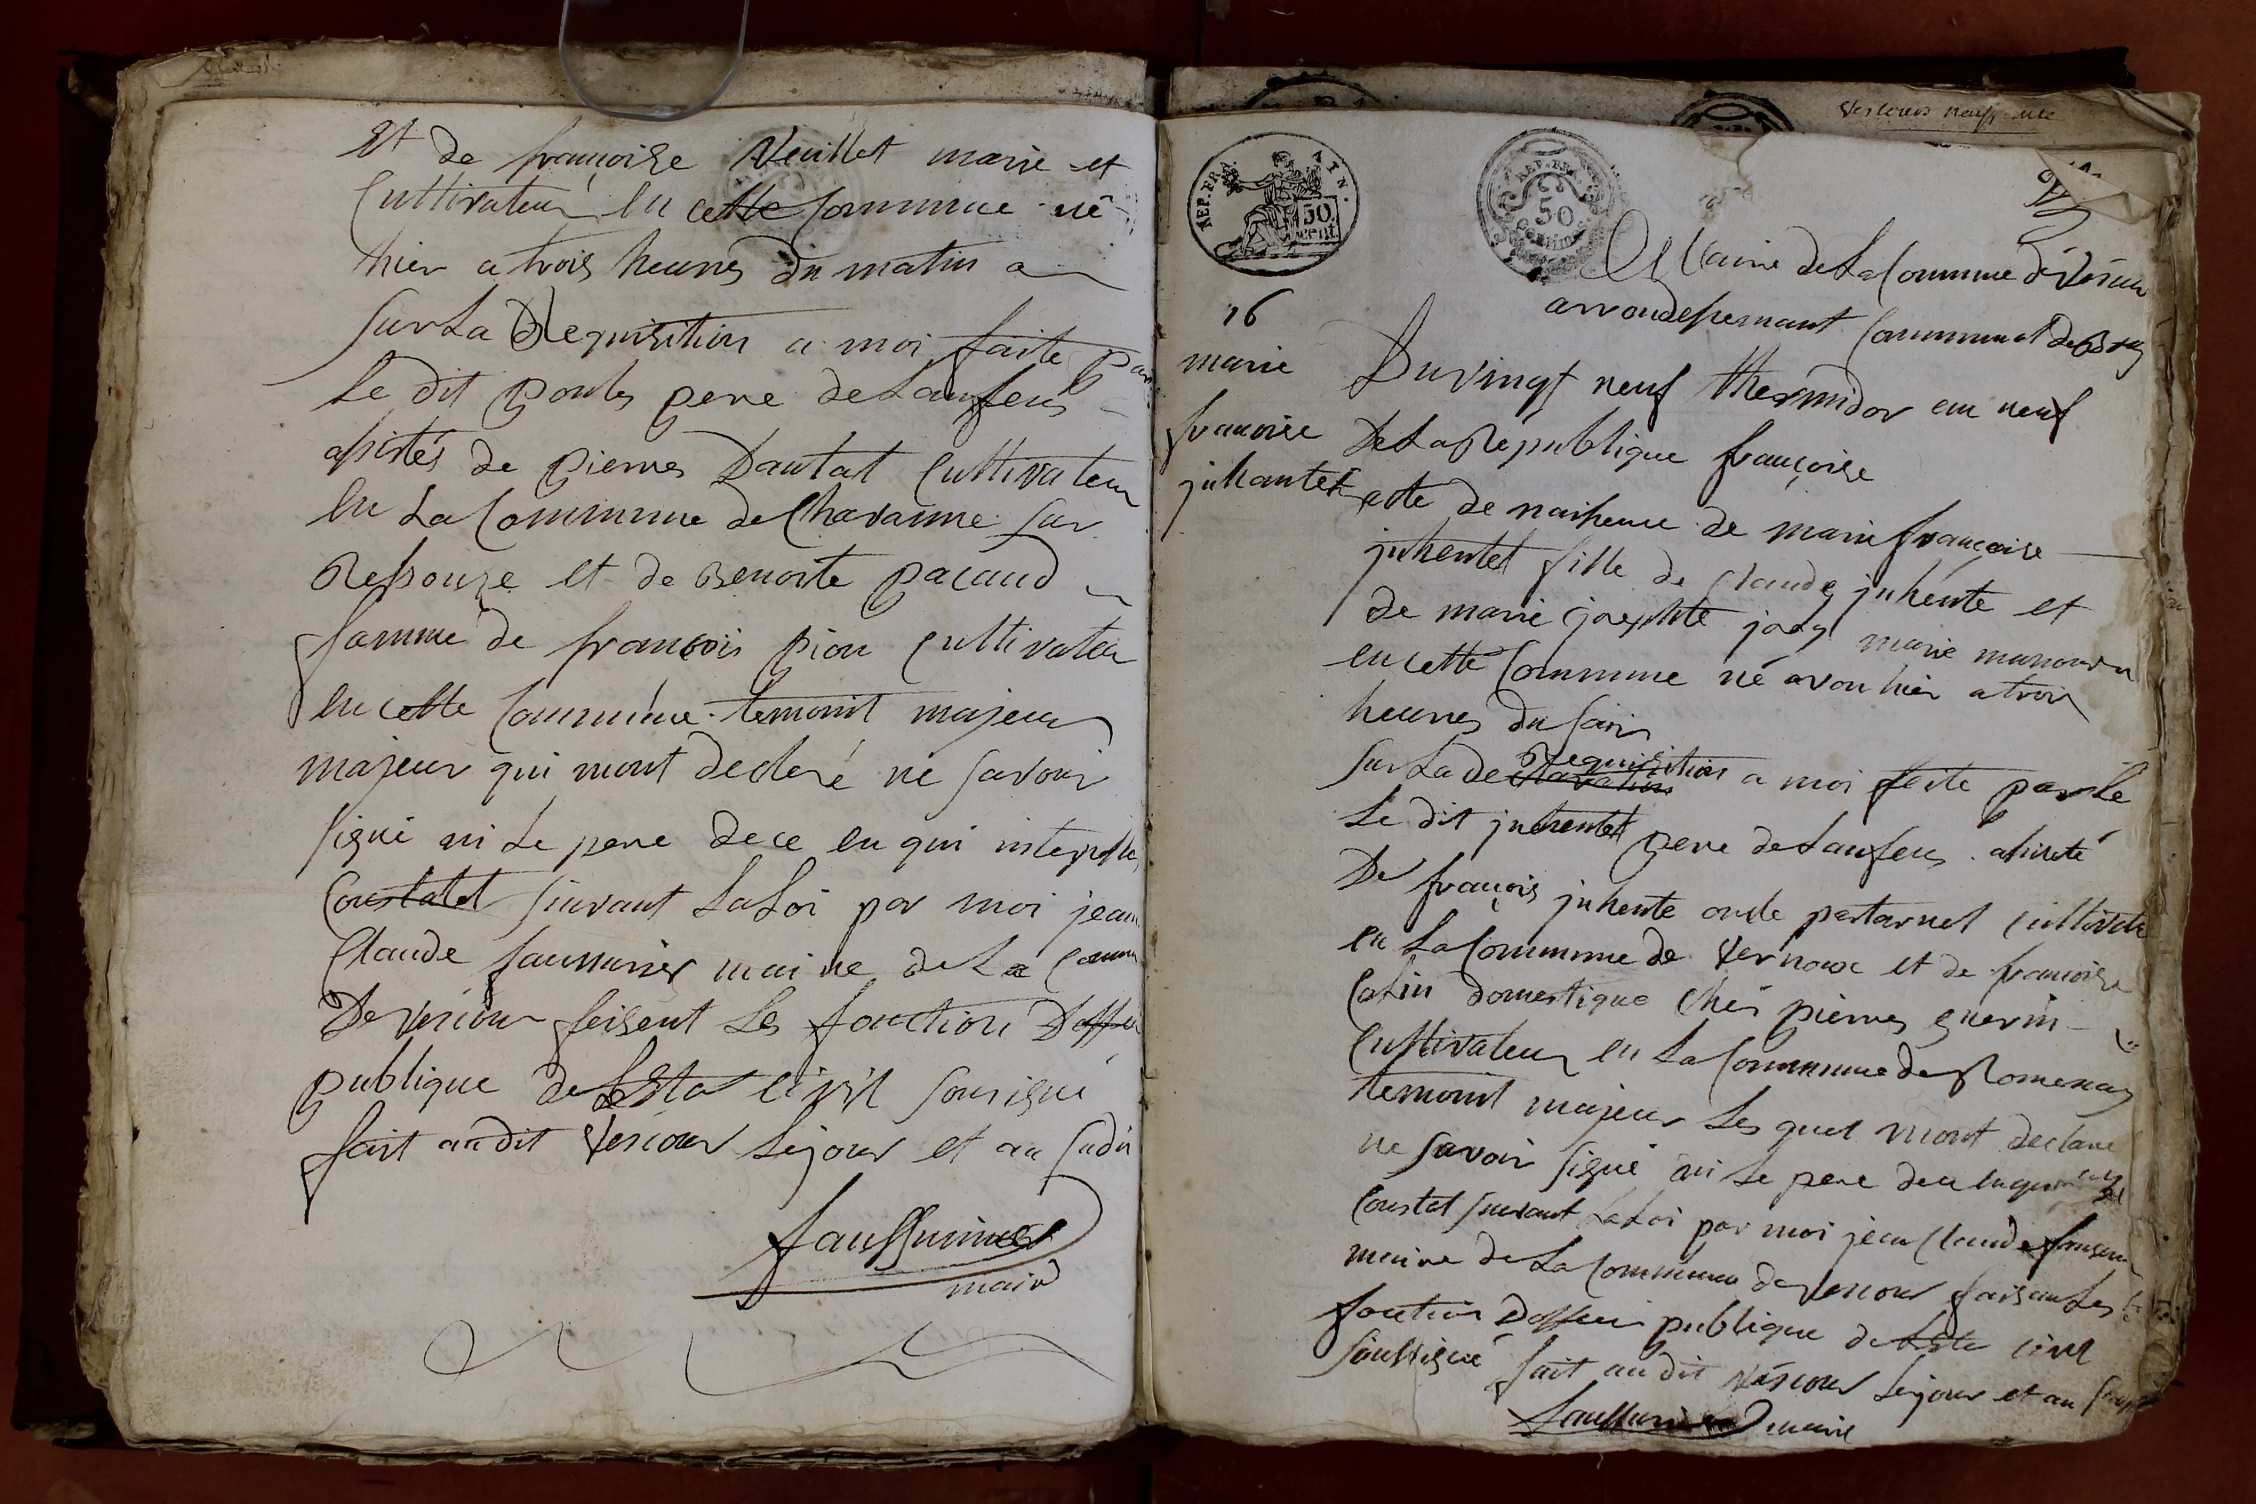 Et de françoise Veuillet marie et
Cultivateur en cette Commune né
hier a trois heures du matin a
Sur La Requisition a moi faite par
Le dit goules pere de Lanfens
asistés de pierres Dautat Cultivateur
en La Commune de Chavanne sur
Ressouze et de Benoite pacaud
famme de francois pion Cultivateu
en cette Commune temoint majeur
majeur qui mont decleré ne savoir
signé ni Le pere de ce enqui interpelle
Constatet suivant La Loi par moi jean
Claude faussurier maire de La Commu
De vescour feisent Les fonction Doffici
publique de Leta Civil sousigné
fait audit vescour Lejour et an susdi
faussurier
maire
REP. FRA. AIN.
50 cent.
REP. FRA.
50
Centim
Mairie de La Commune de Vescour
arrondessemant Communal de Bourg
16
marie
francoise
juhantet
Du vingt neuf thermidor an neuf
De La République françoise
acte de naissence de marie françoise
juhentet fille de Claude juhente et
de marie josephte joly marie manouvr
en cette Commune né avon hier a troi
heures du soir
Requisition
Sur La de claration a moi feite par Le
Le dit juhentet pere de Lanfens asisté
De françois juhente oncle partarnel Cultivate
en La Commune de vernoux et de francoise
Catin domestique ches pierres guerin
Cultivateur en La Commune de Romenay
temoint majeur Les quel mont declaré
ne savoir signé ni Le pere de ce enqui
Constet suivant La Loi par moi jean Claude
maire de La Commune de vescour faisan Les
fonction Doffici publique de Leta civil
soussigné fait audit véscour Lejour et an
faussurier maire